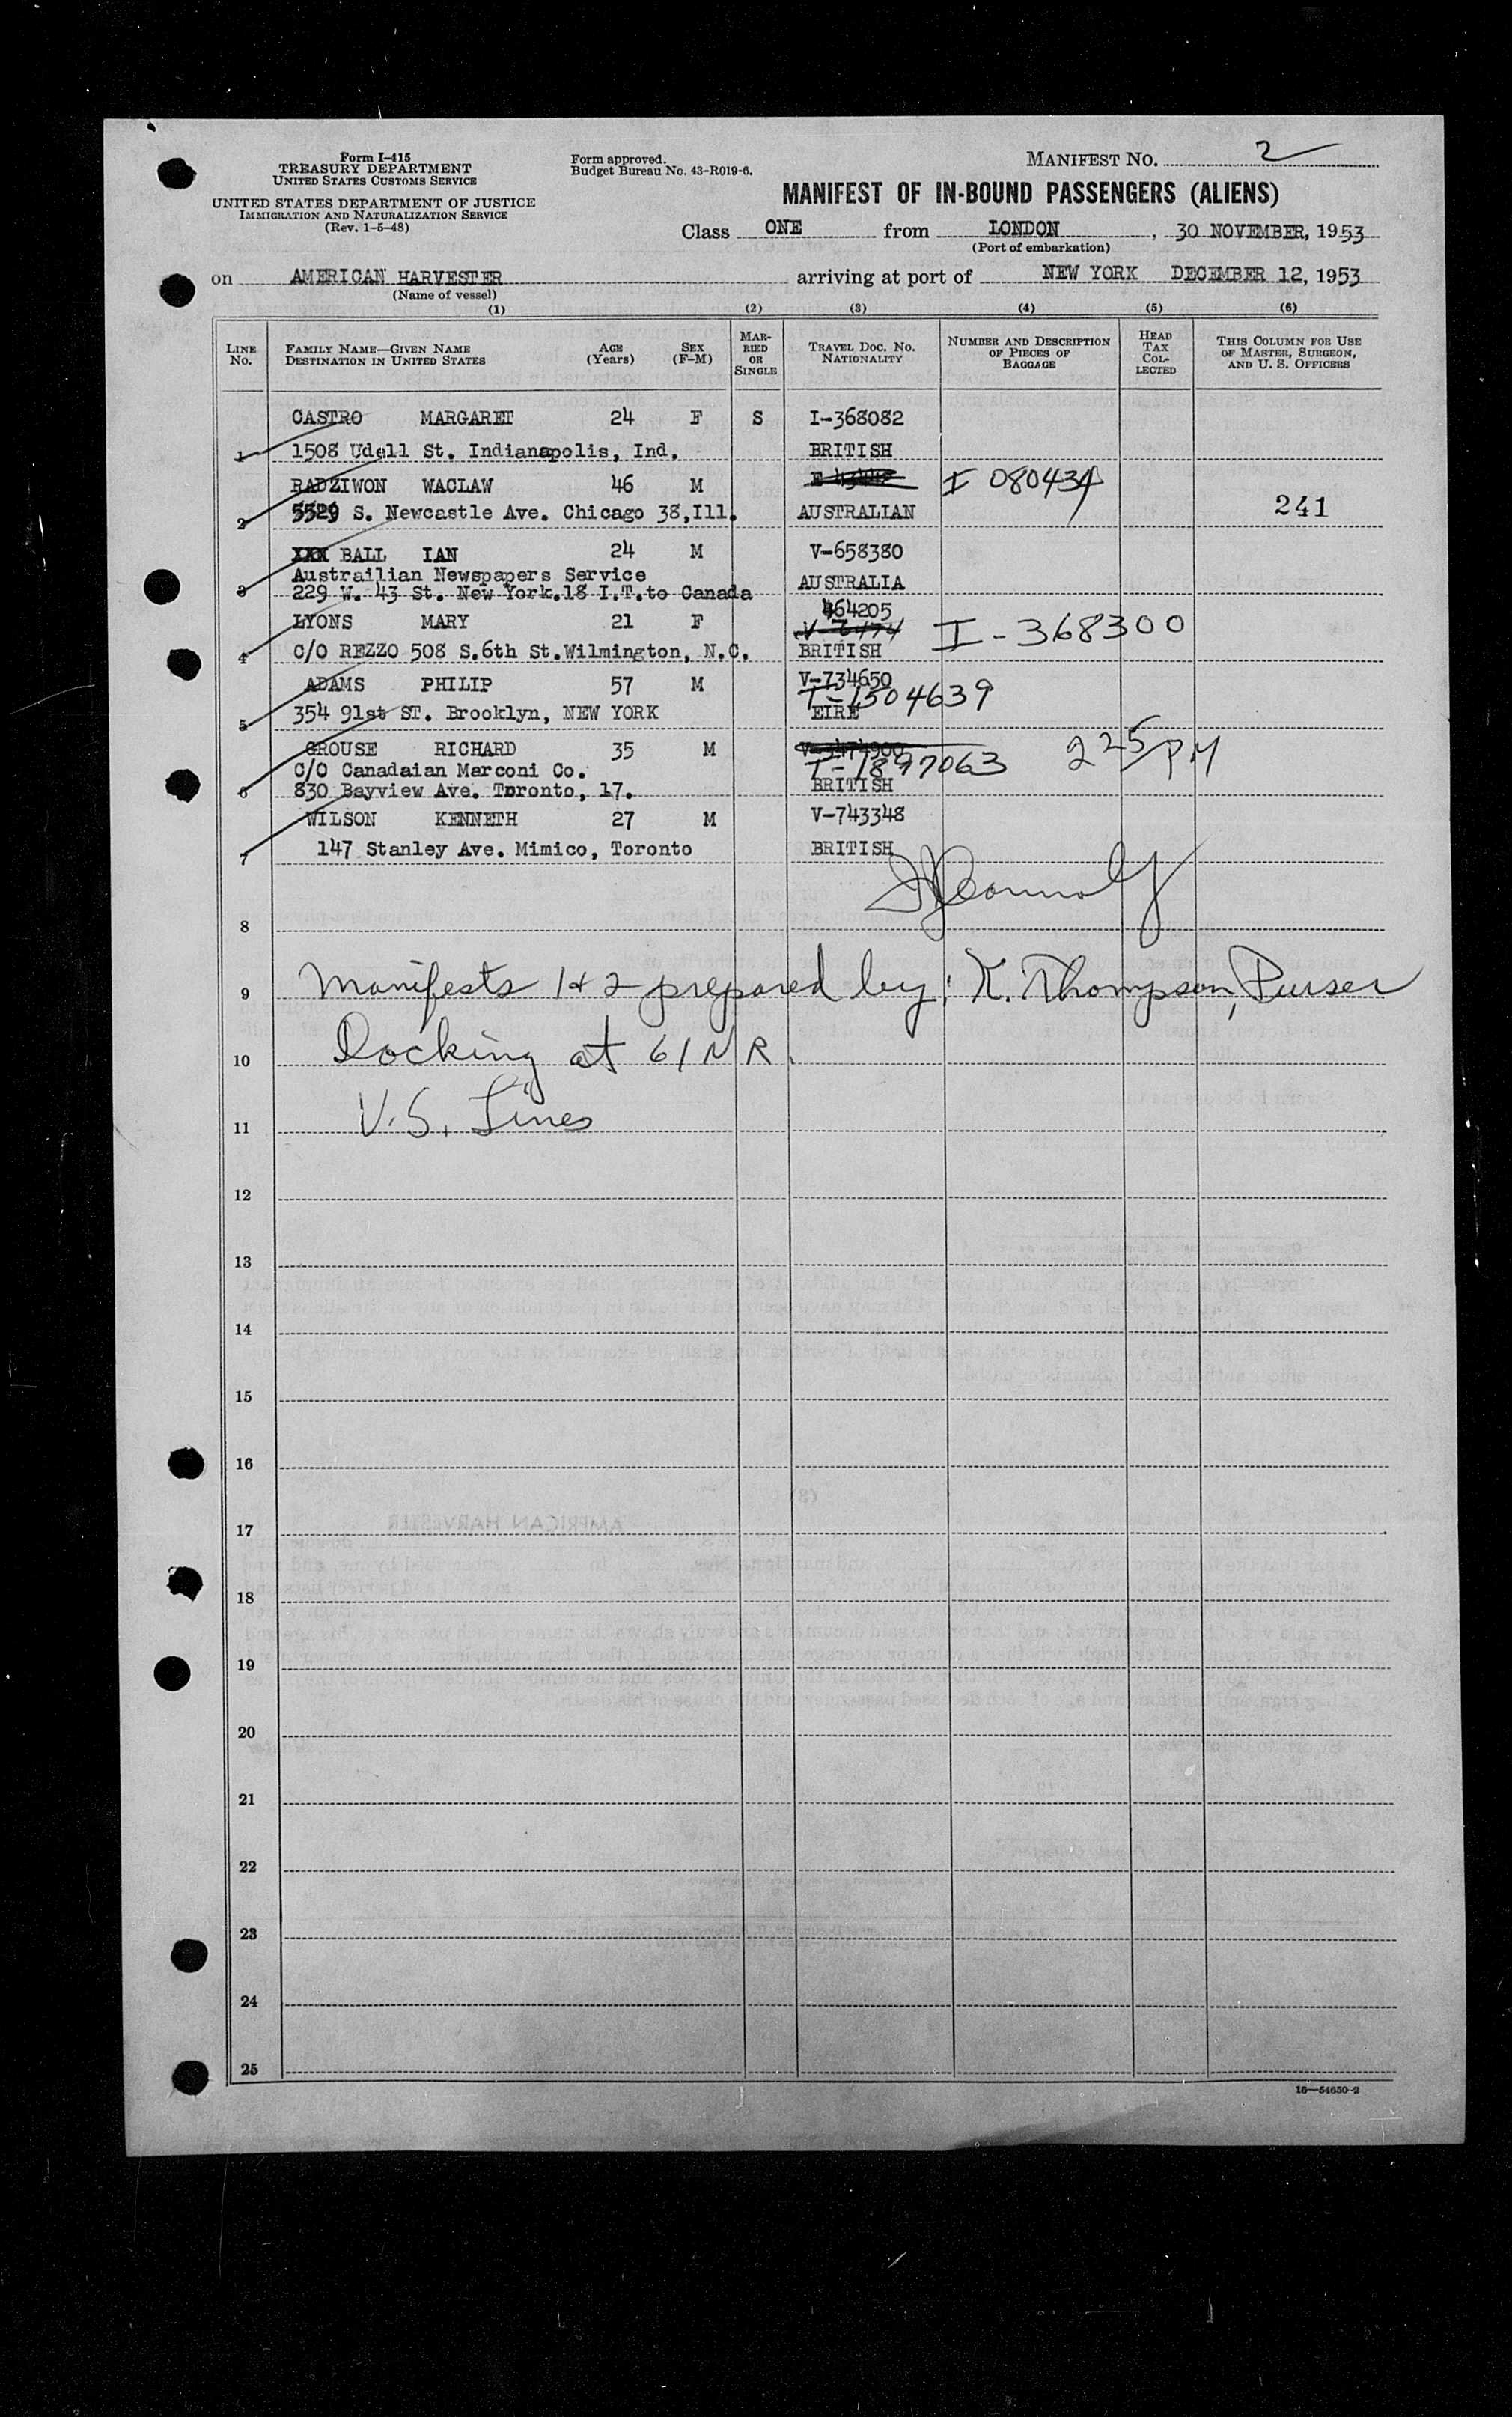 Form I-415
TREASURY DEPARTMENT
UNITED STATES CUSTOMS SERVICE
UNITED STATES DEPARTMENT OF JUSTICE
IMMIGRATION AND NATURALIZATION SERVICE
(Rev. 1-5-48)
Form approved.
Budget Bureau No. 43-R019-6.
MANIFEST NO. 2
MANIFEST OF IN-BOUND PASSENGERS (ALIENS)
Class ONE from LONDON, 30 NOVEMBER, 1953
(Port of embarkation)
on AMERICAN HARVESTER arriving at port of NEW YORK DECEMBER 12, 1953
(Name of vessel)
(1) (2) (3) (4) (5) (6)
LINE No. FAMILY NAME—GIVEN NAME DESTINATION IN UNITED STATES AGE (Years) SEX (F-M) MARRIED OR SINGLE TRAVEL DOC. NO. NATIONALITY NUMBER AND DESCRIPTION OF PIECES OF BAGGAGE HEAD TAX COLLECTED THIS COLUMN FOR USE OF MASTER, SURGEON, AND U. S. OFFICERS
CASTRO MARGARET 24 F S I-368082
1 1508 Udell St. Indianapolis, Ind. BRITISH
RADZIWON WACLAW 46 M I 080434
2 5529 S. Newcastle Ave. Chicago 38,Ill. AUSTRALIAN 241
XXX BALL IAN 24 M V-658380
Austrailian Newspapers Service AUSTRALIA
3 229 W. 43 St. New York.18 I.T.to Canada
464205
LYONS MARY 21 F I-368300
4 C/O REZZO 508 S.6th St.Wilmington, N.C. BRITISH
ADAMS PHILIP 57 M V-734650
T-1504639
5 354 91st ST. Brooklyn, NEW YORK EIRE
GROUSE RICHARD 35 M V-3474900
C/O Canadaian Marconi Co. T-1897063 225 PM
6 830 Bayview Ave. Toronto, 17. BRITISH
WILSON KENNETH 27 M V-743348
7 147 Stanley Ave. Mimico, Toronto BRITISH
8
9 Manifests 1 & 2 prepared by: K. Thompson, Purser
10 Docking at 61 N R.
11 U.S. Lines
12
13
14
15
16
17
18
19
20
21
22
23
24
25
16—54650-2